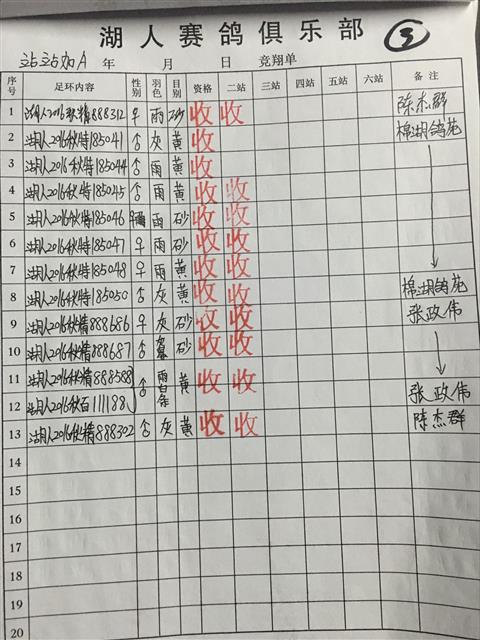 湖人赛鸽俱乐部 ③
站站加A 年 月 日 竞翔单
序号 足环内容 性别 羽色 目别 资格 二站 三站 四站 五站 六站 备注
1 湖人2016秋精888312 早 雨 砂 收 收 陈杰群
2 湖人2016秋特185041 杏 灰 黄 收 棉湖鸽苑
3 湖人2016秋特185044 杏 雨 黄 收
4 湖人2016秋特185045 杏 雨 黄 收 收
5 湖人2016秋特185046 雨 砂 收 收
6 湖人2016秋特185047 早 雨 砂 收 收
7 湖人2016秋特185048 早 雨 黄 收 收
8 湖人2016秋特185050 杏 灰 黄 收 收 棉湖鸽苑
9 湖人2016秋精888686 早 灰 砂 收 收 张政伟
10 湖人2016秋精888687 杏 砂 收 收
11 湖人2016秋精888588 杏 雨白条 黄 收 收 张政伟
12 湖人2016秋百111188
13 湖人2016秋精888302 杏 灰 黄 收 收 陈杰群
14
15
16
17
18
19
20